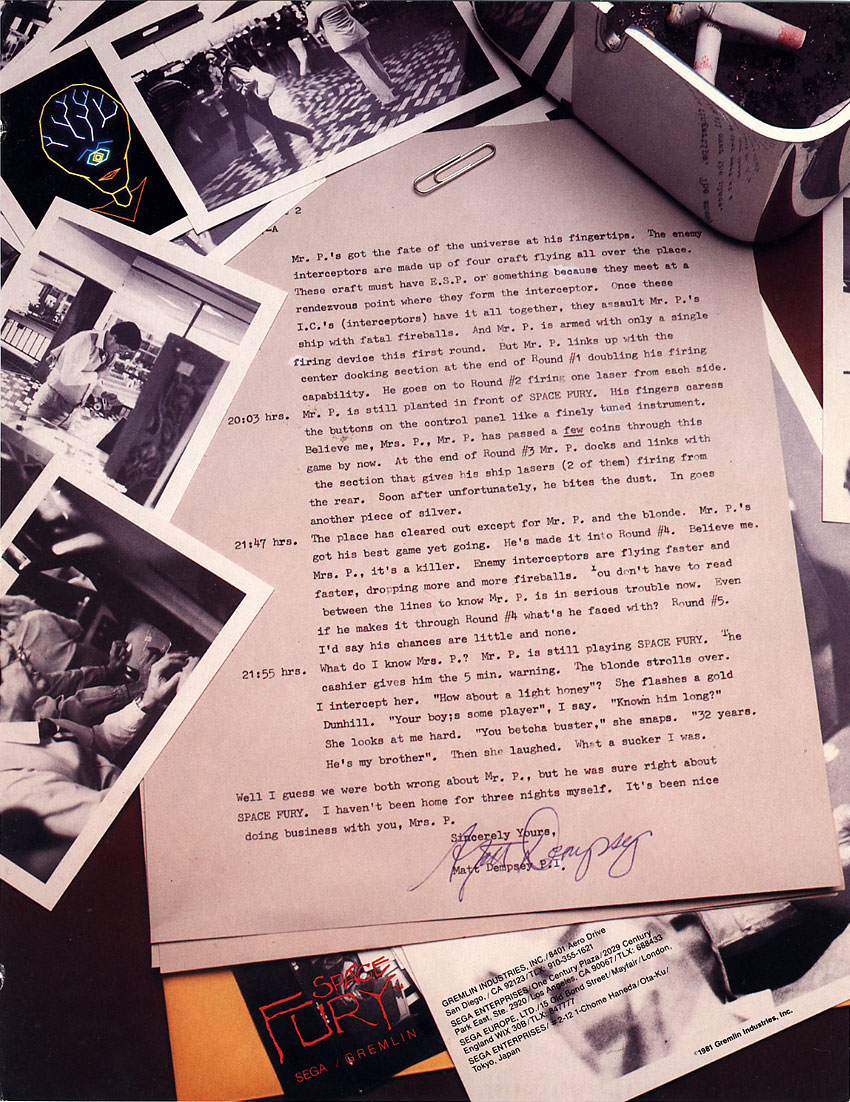 - 2
-A
Mr. P.'s got the fate of the universe at his fingertips. The enemy
interceptors are made up of four craft flying all over the place.
These craft must have E.S.P. or something because they meet at a
rendezvous point where they form the interceptor. Once these
I.C.'s (interceptors) have it all together, they assault Mr. P.'s
ship with fatal fireballs. And Mr. P. is armed with only a single
firing device this first round. But Mr. P. links up with the
center docking section at the end of Round #1 doubling his firing
capability. He goes on to Round #2 firing one laser from each side.
20:03 hrs. Mr. P. is still planted in front of SPACE FURY. His fingers caress
the buttons on the control panel like a finely tuned instrument.
Believe me, Mrs. P., Mr. P. has passed a few coins through this
game by now. At the end of Round #3 Mr. P. docks and links with
the section that gives his ship lasers (2 of them) firing from
the rear. Soon after unfortunately, he bites the dust. In goes
another piece of silver.
21:47 hrs. The place has cleared out except for Mr. P. and the blonde. Mr. P.'s
got his best game yet going. He's made it into Round #4. Believe me.
Mrs. P., it's a killer. Enemy interceptors are flying faster and
faster, dropping more and more fireballs. You don't have to read
between the lines to know Mr. P. is in serious trouble now. Even
if he makes it through Round #4 what's he faced with? Round #5.
I'd say his chances are little and none.
21:55 hrs. What do I know Mrs. P.? Mr. P. is still playing SPACE FURY. The
cashier gives him the 5 min. warning. The blonde strolls over.
I intercept her. "How about a light honey"? She flashes a gold
Dunhill. "Your boy;s some player", I say. "Known him long?"
She looks at me hard. "You betcha buster," she snaps. "32 years.
He's my brother". Then she laughed. What a sucker I was.
Well I guess we were both wrong about Mr. P., but he was sure right about
SPACE FURY. I haven't been home for three nights myself. It's been nice
doing business with you, Mrs. P.
Sincerely Yours,
Matt Dempsey
Matt Dempsey P.I.
SPACE
FURY
SEGA / GREMLIN
GREMLIN INDUSTRIES, INC./8401 Aero Drive
San Diego,/CA 92123/TLX: 910-355-1621
SEGA ENTERPRISES/One Century Plaza/2029 Century
Park East, Ste. 2920/Los Angeles, CA 90067/TLX: 688433
SEGA EUROPE, LTD./15 Old Bond Street/Mayfair/London,
England WIX 30B/TLX: 847777
SEGA ENTERPRISES/#2-12 1-Chome Haneda/Ota-Ku/
Tokyo, Japan
©1981 Gremlin Industries, Inc.